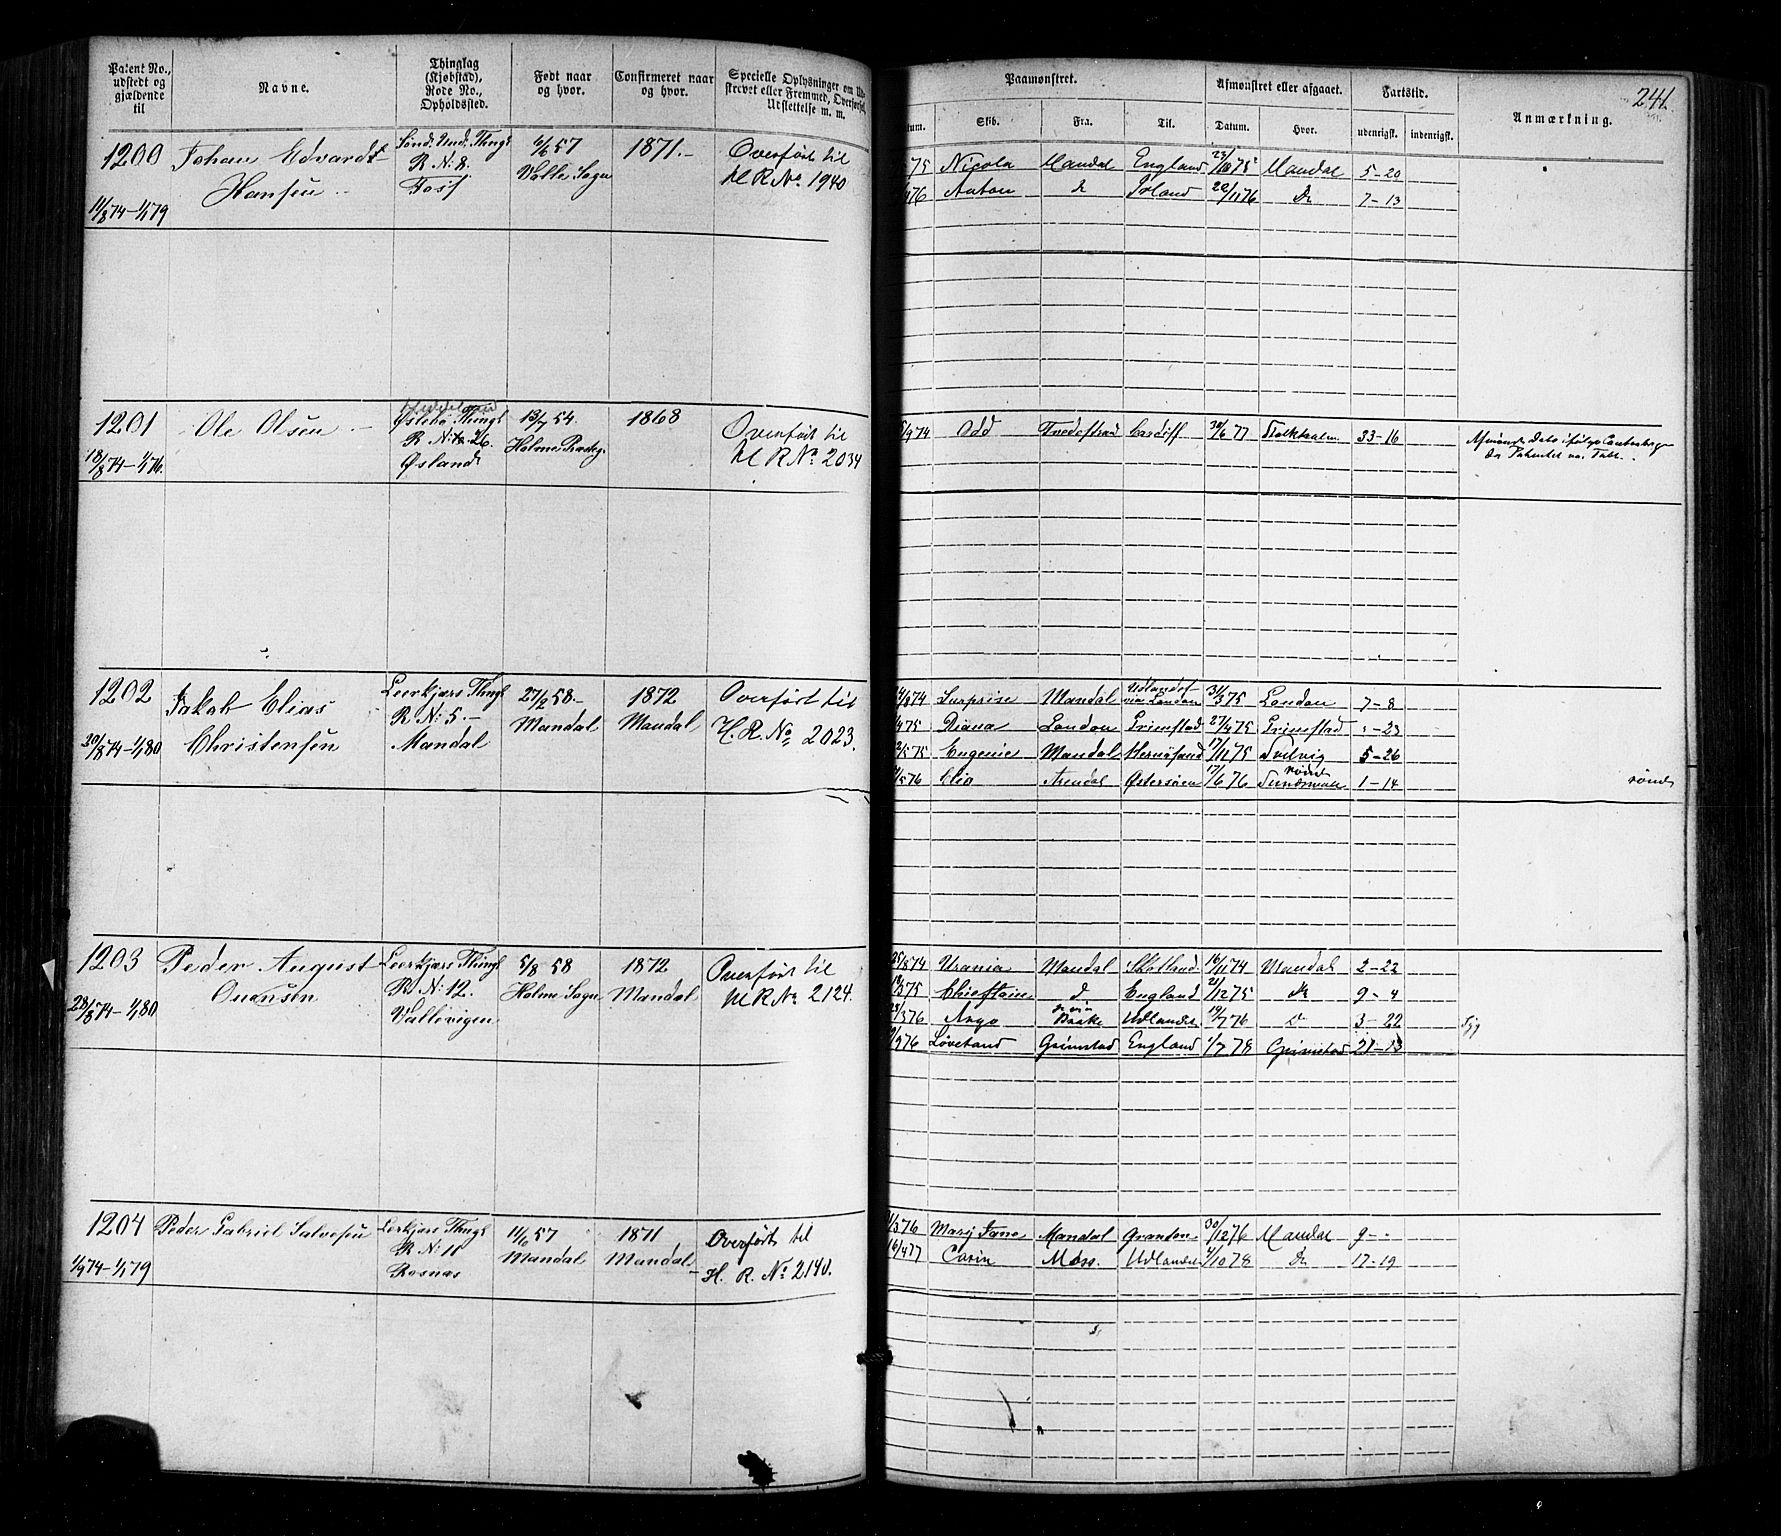 241.
Patent No., udstedt og gjældende til
Navne.
Thinglag (Kjøbstad), Rode No., Opholdssted.
Født naar og hvor.
Confirmeret naar og hvor.
Specielle Oplysninger om Udskrevet eller Fremmed, Overførsel, Udslettelse m. m.
Paamønstret.
Afmønstret eller afgaaet.
Fartstid.
Anmærkning.
Skib.
Fra.
Til.
Datum.
Hvor.
udenrigsk.
indenrigsk.
1200
Johan Edvardt
Hansen
11/8 74 - 1/1 79
Sønd. Und. Thingl
R. N: 8.
Foss
6/6 57
Valle Sogn
1871.-
Overført til
H R No. 1940
75 Nicola Mandal England 75 Mandal 5-20
76 Anton Do Irland 20/11 76 Do 7-13
1201
Ole Olsen
18/8 74 - 1/1 76.
Øslebø Thingl
R. N: 26.
Øsland
13/7 54.
Holme Prestg.
1868
Overført til
H R No. 2034
9 74 Odd Tvedestrand Cardiff 30/6 77 Stokholm. 33-16
1202
Jakob Elias
Christensen
20/8 74 - 1/1 80
Leerkjærs Thingl
R. N: 5.-
Mandal
27/2 58.-
Mandal
1872
Mandal
Overført til
H. R. No. 2023.
8 74 Surprise Mandal Udlandet via London 31/3 75 London 7-8
4 75 Diana London Grimstad 27/4 75 Grimstad - 23
5 75 Eugenie Mandal Hernøsand 17/11 75 Svelvig 5-26
5 76 Clio Arendal Østersøen 17/6 76 Sundsvall rømt 1-14 rømt
1203
Peder August
Onensen
28/8 74 - 1/1 80
Leerkjærs Thingl
R. N: 12.
Vallevigen
5/8 58
Holme Sogn
1872
Mandal
Overført til
H R No. 2124.
25/8 74 Urania Mandal Skotland 16/11 74 Mandal 2-22
3 75 Chieftain Do England 21/12 75 Do 9-4
3 76 Argo Do via Udlandet 19/7 76 Do 3-22 Syg
9 76 Løvetand Grimstad England 1/7 78 Grimstad 21-13
1204
Peder Gabriel Salvesen
1/9 74 - 1/1 79
Lerkjærs Thingl
R. N: 11
Rosnæs
11/6 57
Mandal
1871
Mandal
Overført til
H. R. No. 2140.
3 76 Mary Jane Mandal Granton 30/12 76 Mandal 9--
16/4 77 Carin Moss. Udlandet 4/10 78 Do 17-19